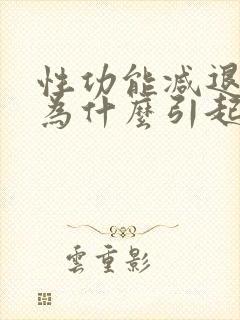 性功能减退
為什麼引起
雲重影